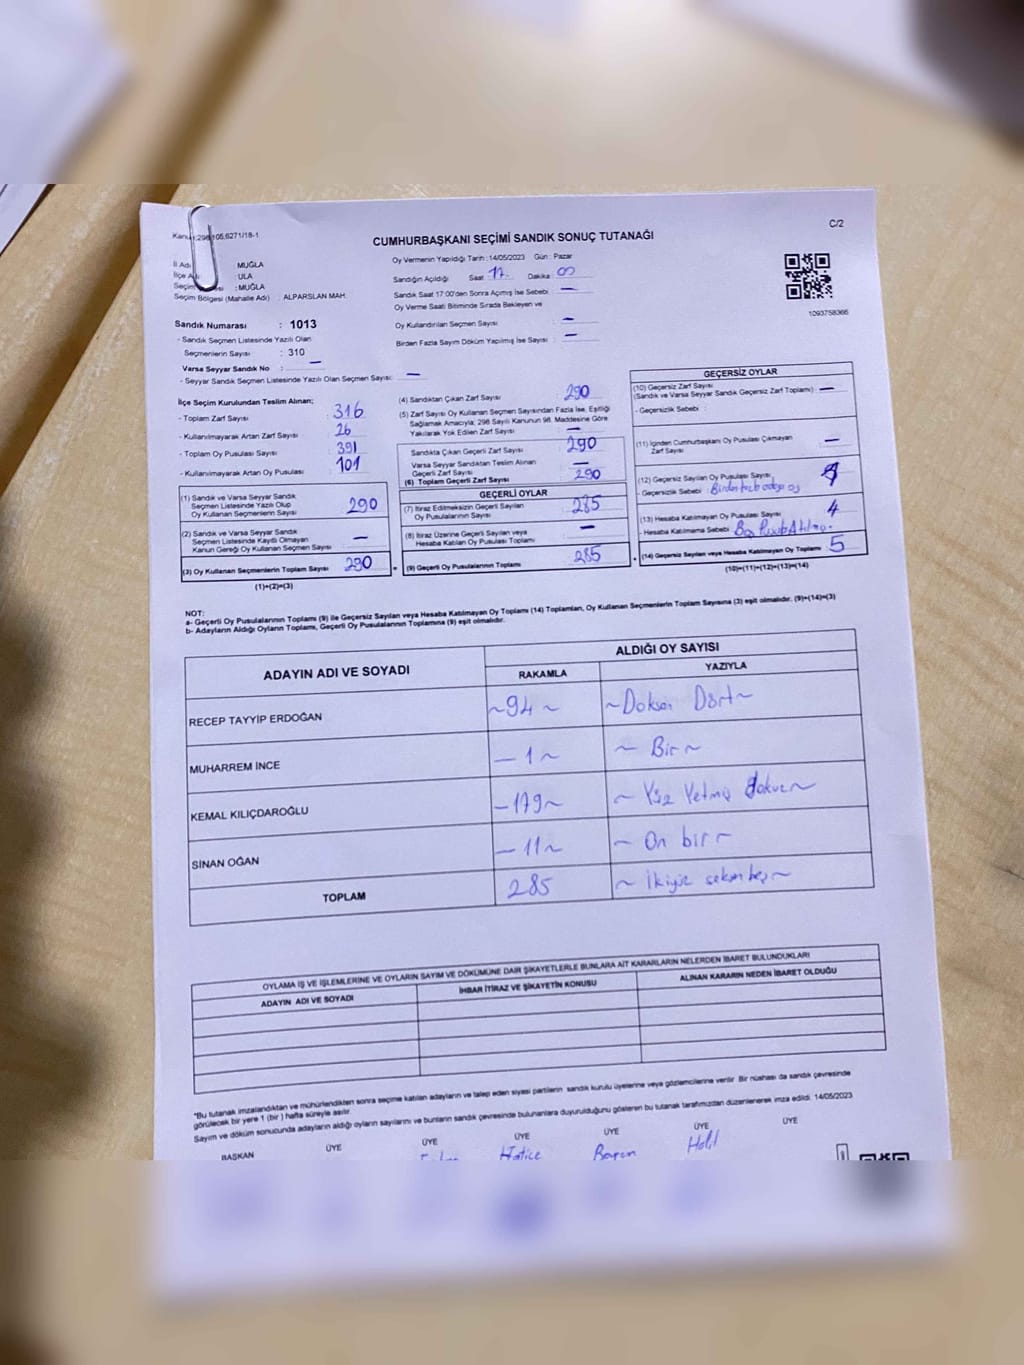 Kanun:298,105,6271/18-1
C/2
CUMHURBAŞKANI SEÇİMİ SANDIK SONUÇ TUTANAĞI
İl Adı : MUĞLA
İlçe Adı : ULA
Seçim : MUĞLA
Seçim Bölgesi (Mahalle Adı) : ALPARSLAN MAH.
Sandık Numarası : 1013
- Sandık Seçmen Listesinde Yazılı Olan
Seçmenlerin Sayısı : 310
Varsa Seyyar Sandık No : —
- Seyyar Sandık Seçmen Listesinde Yazılı Olan Seçmen Sayısı: —
Oy Vermenin Yapıldığı Tarih :14/05/2023 Gün : Pazar
Sandığın Açıldığı Saat 17. Dakika 00
Sandık Saat 17:00'den Sonra Açılmış İse Sebebi : —
Oy Verme Saati Bitiminde Sırada Bekleyen ve
Oy Kullandırılan Seçmen Sayısı : —
Birden Fazla Sayım Döküm Yapılmış İse Sayısı : —
1093758366
İlçe Seçim Kurulundan Teslim Alınan;
- Toplam Zarf Sayısı : 316
- Kullanılmayarak Artan Zarf Sayısı : 26
- Toplam Oy Pusulası Sayısı : 391
- Kullanılmayarak Artan Oy Pusulası : 101
(1) Sandık ve Varsa Seyyar Sandık
Seçmen Listesinde Yazılı Olup
Oy Kullanan Seçmenlerin Sayısı 290
(2) Sandık ve Varsa Seyyar Sandık
Seçmen Listesinde Kayıtlı Olmayan
Kanun Gereği Oy Kullanan Seçmen Sayısı —
(3) Oy Kullanan Seçmenlerin Toplam Sayısı 290
(1)+(2)=(3)
(4) Sandıktan Çıkan Zarf Sayısı : 290
(5) Zarf Sayısı Oy Kullanan Seçmen Sayısından Fazla İse, Eşitliği
Sağlamak Amacıyla; 298 Sayılı Kanunun 98. Maddesine Göre
Yakılarak Yok Edilen Zarf Sayısı : —
Sandıkta Çıkan Geçerli Zarf Sayısı : 290
Varsa Seyyar Sandıktan Teslim Alınan
Geçerli Zarf Sayısı : —
(6) Toplam Geçerli Zarf Sayısı : 290
GEÇERLİ OYLAR
(7) İtiraz Edilmeksizin Geçerli Sayılan
Oy Pusulalarının Sayısı 285
(8) İtiraz Üzerine Geçerli Sayılan veya
Hesaba Katılan Oy Pusulası Toplamı —
= (9) Geçerli Oy Pusulalarının Toplamı 285
GEÇERSİZ OYLAR
(10) Geçersiz Zarf Sayısı
(Sandık ve Varsa Seyyar Sandık Geçersiz Zarf Toplamı) : —
- Geçersizlik Sebebi :
(11) İçinden Cumhurbaşkanı Oy Pusulası Çıkmayan
Zarf Sayısı —
(12) Geçersiz Sayılan Oy Pusulası Sayısı :
- Geçersizlik Sebebi :
(13) Hesaba Katılmayan Oy Pusulası Sayısı : 4
- Hesaba Katılmama Sebebi :
+ (14) Geçersiz Sayılan veya Hesaba Katılmayan Oy Toplamı 5
(10)+(11)+(12)+(13)=(14)
NOT:
a- Geçerli Oy Pusulalarının Toplamı (9) ile Geçersiz Sayılan veya Hesaba Katılmayan Oy Toplamı (14) Toplamları, Oy Kullanan Seçmenlerin Toplam Sayısına (3) eşit olmalıdır. (9)+(14)=(3)
b- Adayların Aldığı Oyların Toplamı, Geçerli Oy Pusulalarının Toplamına (9) eşit olmalıdır.
ADAYIN ADI VE SOYADI
ALDIĞI OY SAYISI
RAKAMLA YAZIYLA
RECEP TAYYİP ERDOĞAN ~94~ ~Doksan Dört~
MUHARREM İNCE —1~ ~Bir~
KEMAL KILIÇDAROĞLU —179~ ~Yüz Yetmiş dokuz~
SİNAN OĞAN —11~ ~On bir~
TOPLAM 285 ~İkiyüz seksen beş~
OYLAMA İŞ VE İŞLEMLERİNE VE OYLARIN SAYIM VE DÖKÜMÜNE DAİR ŞİKAYETLERLE BUNLARA AİT KARARLARIN NELERDEN İBARET BULUNDUKLARI
ADAYIN ADI VE SOYADI İHBAR İTİRAZ VE ŞİKAYETİN KONUSU ALINAN KARARIN NEDEN İBARET OLDUĞU
*Bu tutanak imzalandıktan ve mühürlendikten sonra seçime katılan adayların ve talep eden siyasi partilerin sandık kurulu üyelerine veya gözlemcilerine verilir. Bir nüshası da sandık çevresinde
görülecek bir yere 1 (bir) hafta süreyle asılır.
Sayım ve döküm sonucunda adayların aldığı oyların sayılarını ve bunların sandık çevresinde bulunanlara duyurulduğunu gösteren bu tutanak tarafımızdan düzenlenerek imza edildi. 14/05/2023
BAŞKAN ÜYE ÜYE ÜYE ÜYE ÜYE ÜYE
Hatice Halil